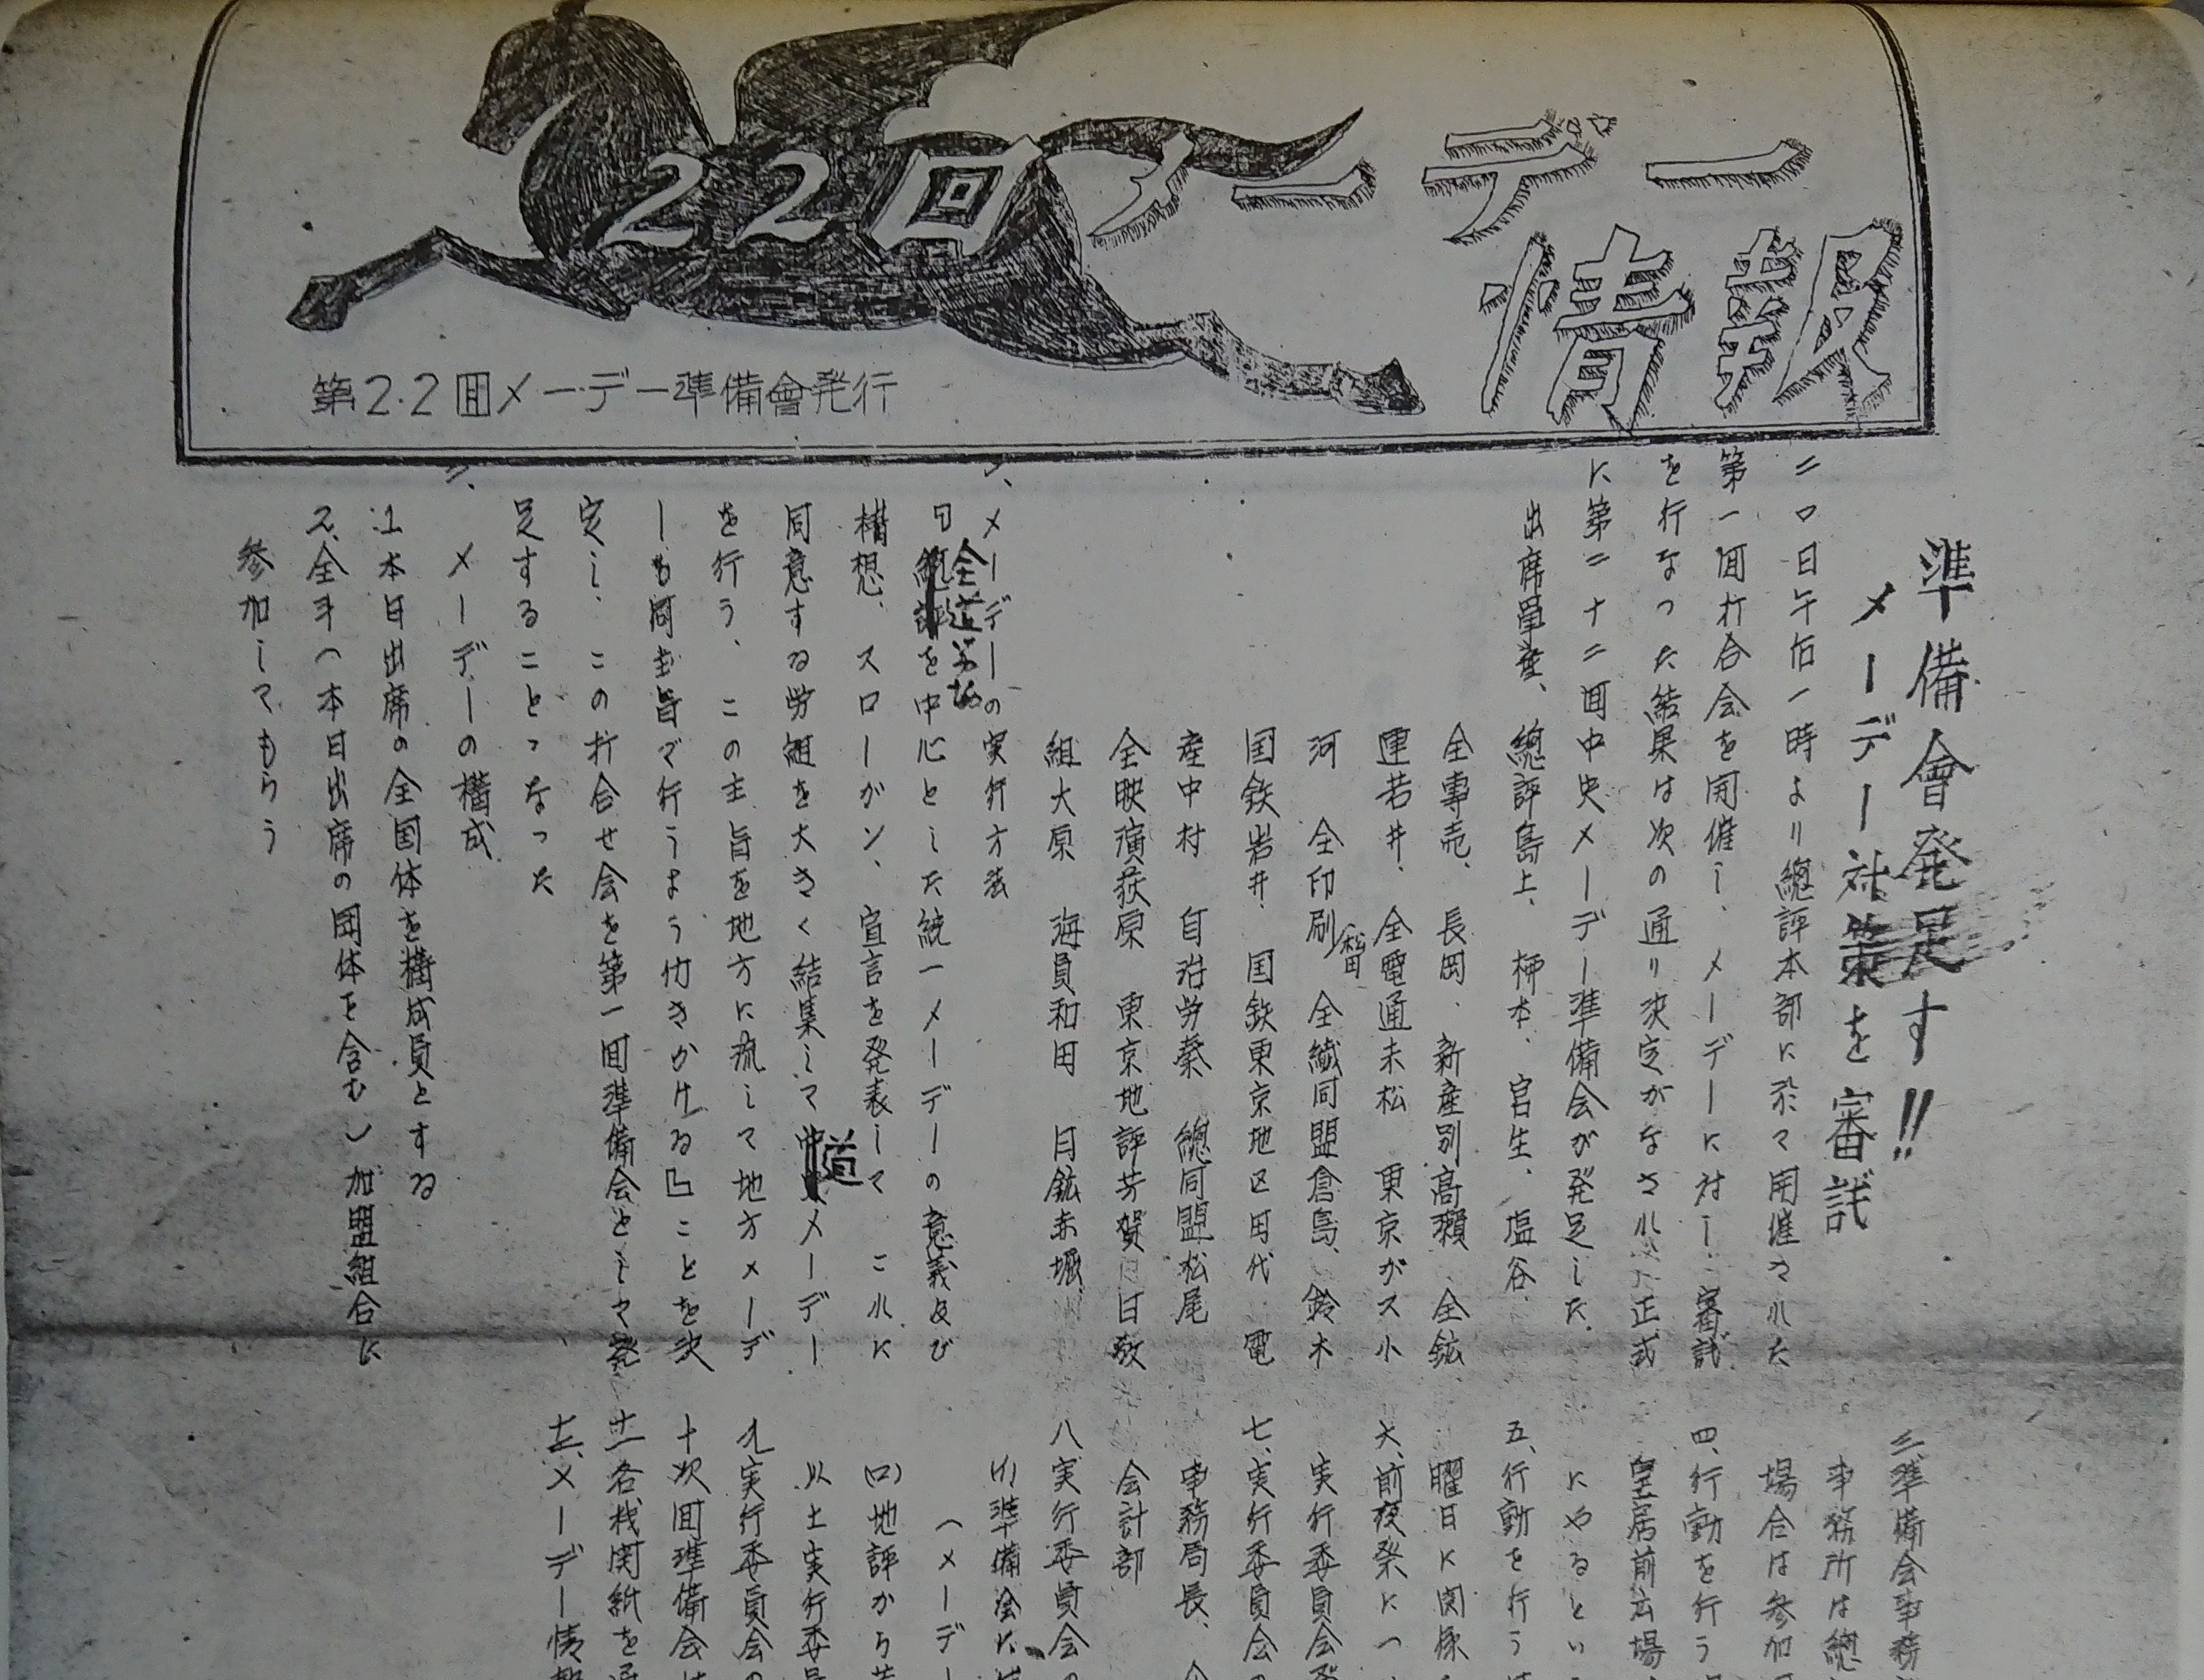 22回メーデー
情報
第2.2回メーデー準備會発行
準備會発足す!!
メーデー対策を審議
二〇日午后一時より總評本部に於て開催された
第一回打合会を開催し、メーデーに対し審議
を行なった結果は次の通り決定がなされ正式
に第二十二回中央メーデー準備会が発足した。
出席單産、總評島上、柳本、宮生、塩谷、
全専売、長岡、新産別高瀬、全鉱
連若井、全電通末松 東京ガス小
河 全印刷 全繊同盟倉島、鈴木
国鉄岩井、国鉄東京地区田代 電
産中村 自治労秦 總同盟松尾
全映演荻原 東京地評芳賀 日教
組大原 海員和田 日鉱赤堀、
一、メーデーの実行方法
全道労協
を中心とした統一メーデーの意義及び
構想、スローガン、宣言を発表して これに
同意する労組を大きく結集して道メーデー
を行う、この主旨を地方に流して地方メーデ
ーも同主旨で行うよう付きかける』ことを決
定し、この打合せ会を第一回準備会として発
足することゝなった
二、メーデーの構成
1.本日出席の全国体を構成員とする
2.全労(本日出席の団体を含む)加盟組合に
参加してもらう
三、準備会事務
事務所は總
場合は参加
四、行動を行う
皇居前広場
にやるとい
五、行動を行う
曜日に関係
六、前夜祭につ
実行委員会
七、実行委員会の
事務局長、
会計部
八、実行委員会の
(イ)準備会に
(メーデ
(ロ)地評から
以上実行委員
九、実行委員会の
十、次回準備会は
十一、各機関紙を通
十二、メーデー情報